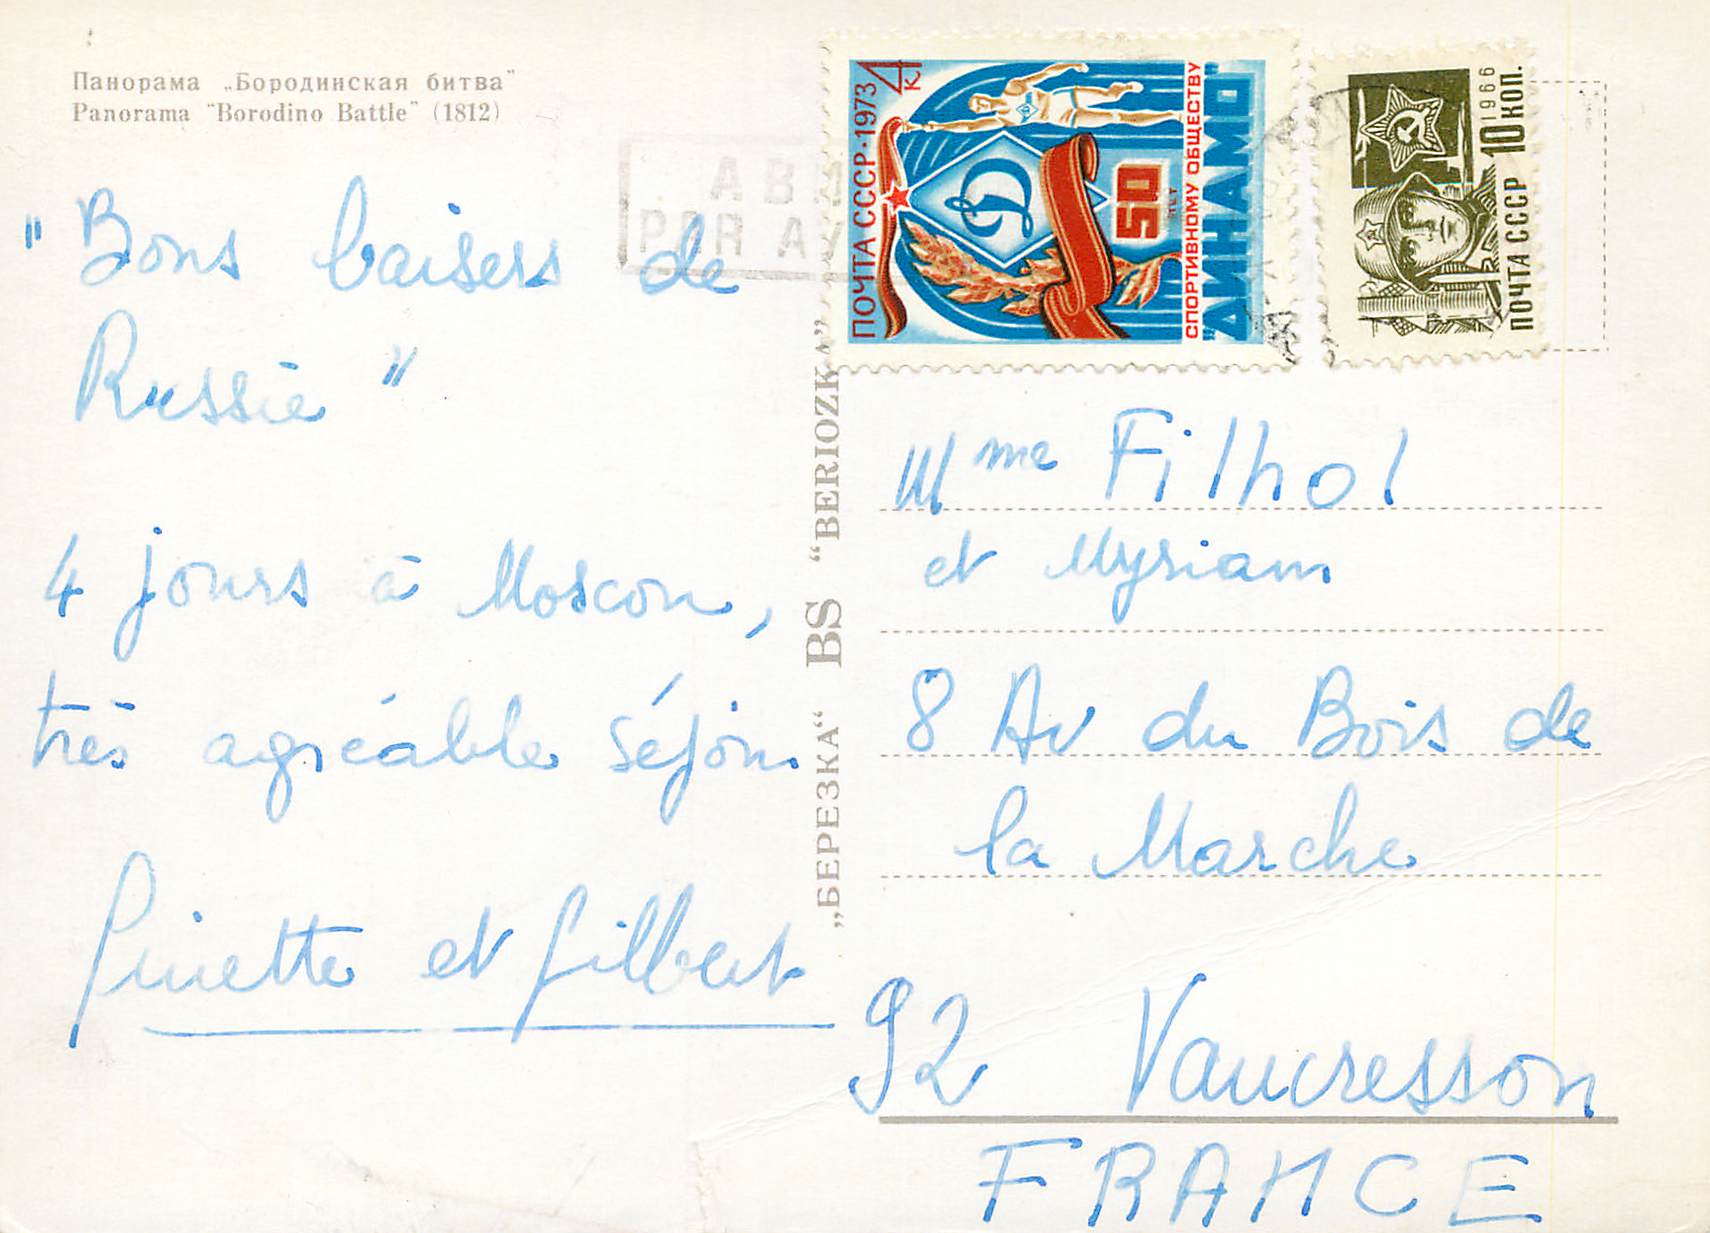 Панорама „Бородинская битва"
Panorama "Borodino Battle" (1812)
PAR
"Bons baisers de
Russie"
4 jours à Moscou,
très agréable séjour
Ginette et Gilbert
„БЕРЕЗКА“ BS “BERIOZKA”
ПОЧТА СССР·1973 4к
50
ЛЕТ
СПОРТИВНОМУ ОБЩЕСТВУ
"ДИНАМО"
ПОЧТА СССР 10 КОП.
1966
Mme Filhol
et Myriam
8 Av du Bois de
la Marche
92 Vaucresson
FRANCE